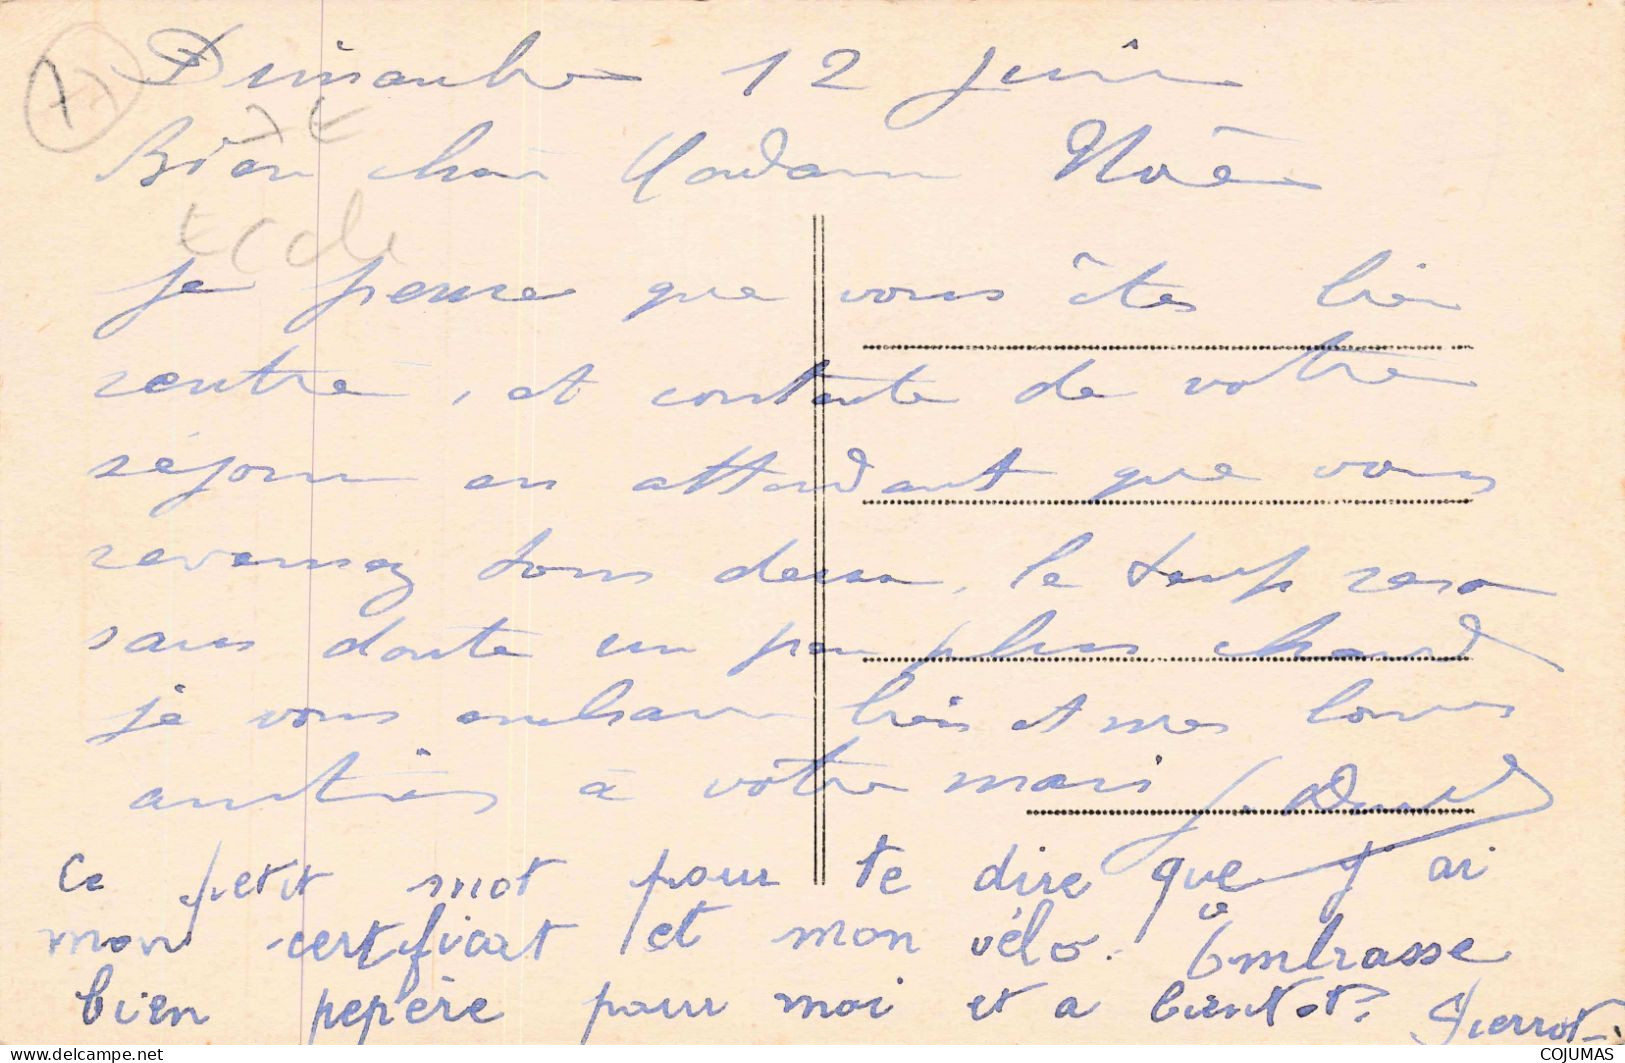 77
Dimanche 12 juin
77
Bien chère Madame Noë
Ecole
je pense que vous êtes bien
rentré, et contente de votre
séjour en attendant que vous
revenez tous deux, le temps sera
sans doute un peu plus chaud
je vous embrasse bien et mes bonnes
amitiés à votre mari
Ce petit mot pour te dire que j'ai
mon certificat et mon vélo. Embrasse
bien pepère pour moi et a bientot? Pierrot
COJUMAS
delcampe.net